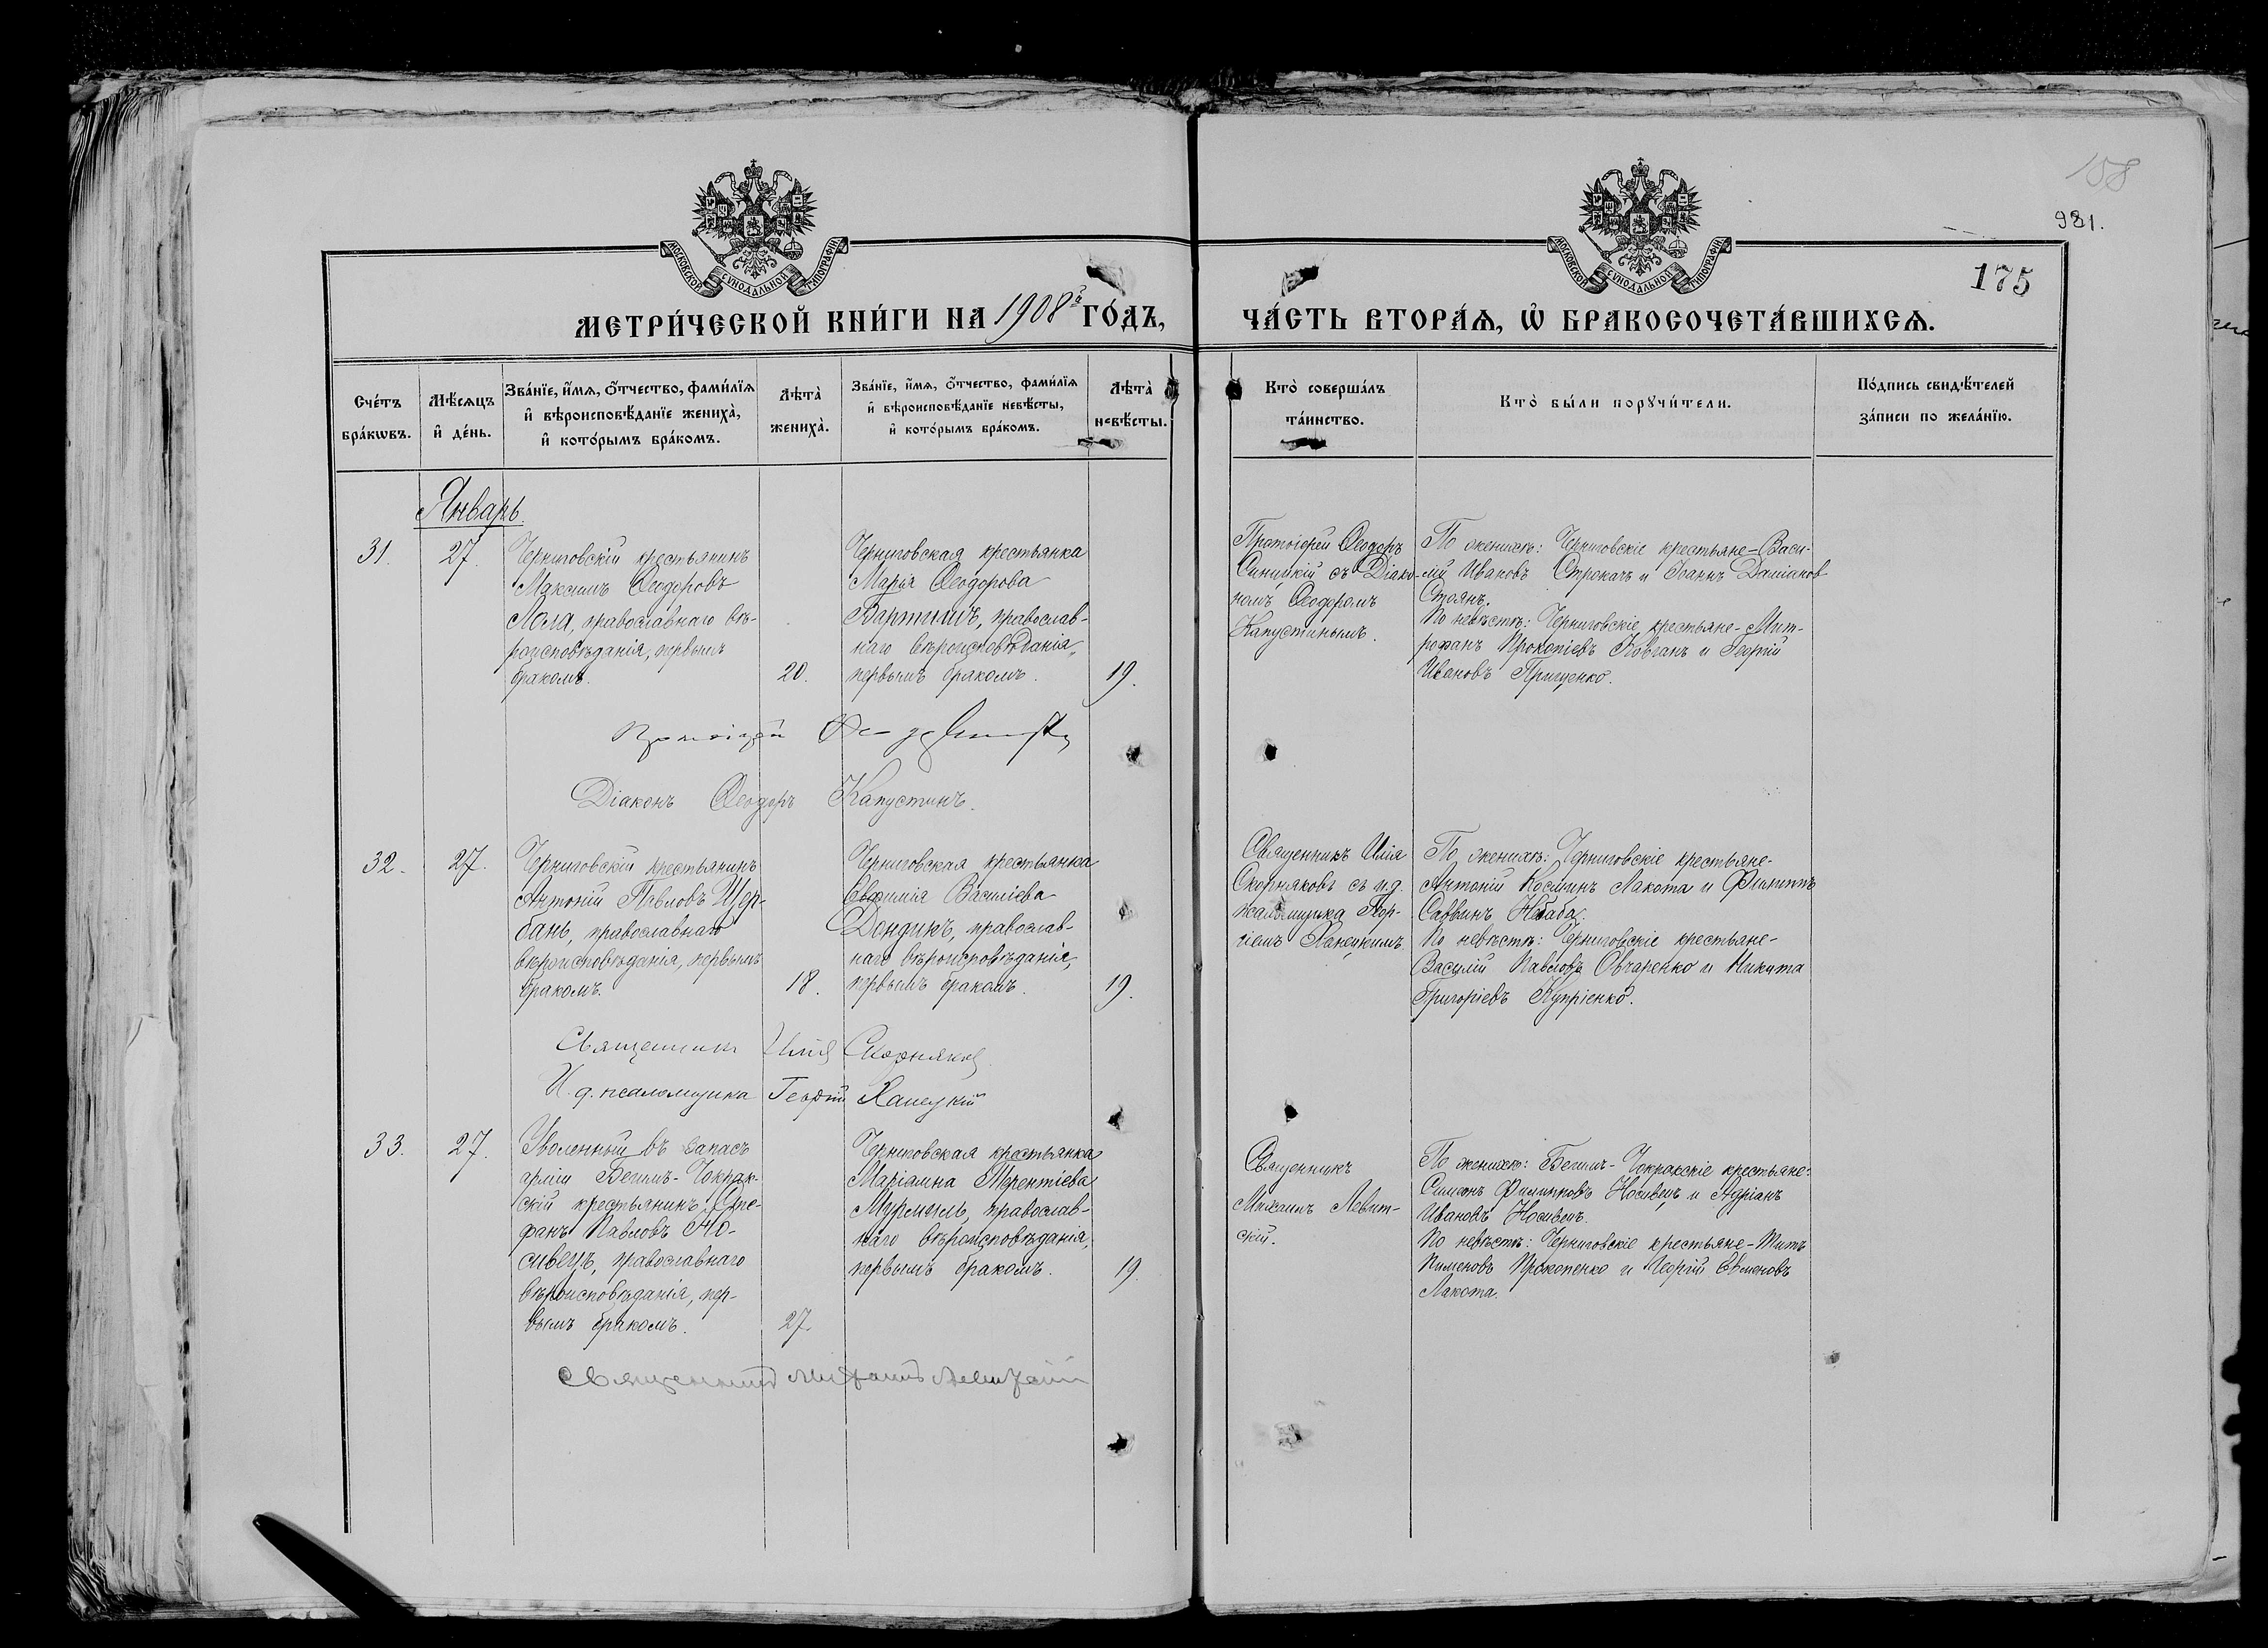 158
981.
175
МОСКОВСКОЙ СѴНОДАЛЬНОЙ ТИПОГРАФІИ
МОСКОВСКОЙ СѴНОДАЛЬНОЙ ТИПОГРАФІИ
МЕТРИ́ЧЕСКОЙ КНИ́ГИ НА 1908й ГО́ДЪ,
ЧА́СТЬ ВТОРА́Ѧ, Ѡ҆ БРАКОСОЧЕТА́ВШИХСѦ.
Сче́тъ
бра́кѡвъ.
Мѣ́сяцъ
и҆ де́нь.
Зва́нїе, и҆́мѧ, ѻ҆́тчество, фами́лїѧ
и҆ вѣроисповѣ́данїе жениха̀,
и҆ кото́рымъ бра́комъ.
Лѣта̀
жениха̀.
Зва́нїе, и҆́мѧ, ѻ҆́тчество, фами́лїѧ
и҆ вѣроисповѣ́данїе невѣ́сты,
и҆ кото́рымъ бра́комъ.
Лѣта̀
невѣ́сты.
Кто̀ соверша́лъ
та́инство.
Кто̀ бы́ли порꙋчи́тели.
По́дпись свидѣ́телей
за́писи по жела́нїю.
Январь.
31.
27.
Черниговскій крестьянинъ
Максимъ Ѳеодоровъ
Лола, православнаго вѣ-
роисповѣданія, первымъ
бракомъ.
20.
Черниговская крестьянка
Марія Ѳеодорова
Бартишъ, православ-
наго вѣроисповѣданія,
первымъ бракомъ.
19.
Протоіерей Ѳеодоръ
Синицкій съ Діако-
номъ Ѳеодоромъ
Капустинымъ.
По женихѣ: Черниговскіе крестьяне-Васи-
лій Ивановъ Строкачъ и Іоаннъ Даміанов
Стоянъ.
По невѣстѣ: Черниговскіе крестьяне-Мит-
рофанъ Прокопіевъ Ковганъ и Георгій
Ивановъ Прищенко.
Протоіерей
Діаконъ Ѳеодоръ Капустинъ.
32.
27.
Черниговскій крестьянинъ
Антоній Павловъ Щер-
бань, православнаго
вѣроисповѣданія, первымъ
бракомъ.
18.
Черниговская крестьянка
Евфимія Василіева
Дондикъ, православ-
наго вѣроисповѣданія,
первымъ бракомъ.
19.
Священникъ Илія
Скорняковъ съ и.д.
псаломщика Геор-
гіемъ Ханецкимъ.
По женихѣ: Черниговскіе крестьяне-
Антоній Косминъ Лакота и Филиппъ
Саввинъ
По невѣстѣ: Черниговскіе крестьяне-
Василій Павловъ Овчаренко и Никита
Григоріевъ Купріенко.
Священникъ Илія Скорняковъ
И.д. псаломщика Георгій Ханецкій
33.
27.
Уволенный въ запасъ
арміи Бегимъ-Чокрак-
скій крестьянинъ Сте-
фанъ Павловъ Но-
сивецъ, православнаго
вѣроисповѣданія, пер-
вымъ бракомъ.
27.
Черниговская крестьянка
Маріамна Терентіева
Мурмыль, православ-
наго вѣроисповѣданія,
первымъ бракомъ.
19.
Священникъ
Михаилъ Левит-
скій.
По женихѣ: Бегимъ-Чокракскіе крестьяне:
Симеонъ Филипповъ Носивецъ и Адріанъ
Ивановъ Носивецъ.
По невѣстѣ: Черниговскіе крестьяне-Титъ
Пименовъ Прокопенко и Георгій Евменовъ
Лакота.
Священникъ Михаилъ Левитскій